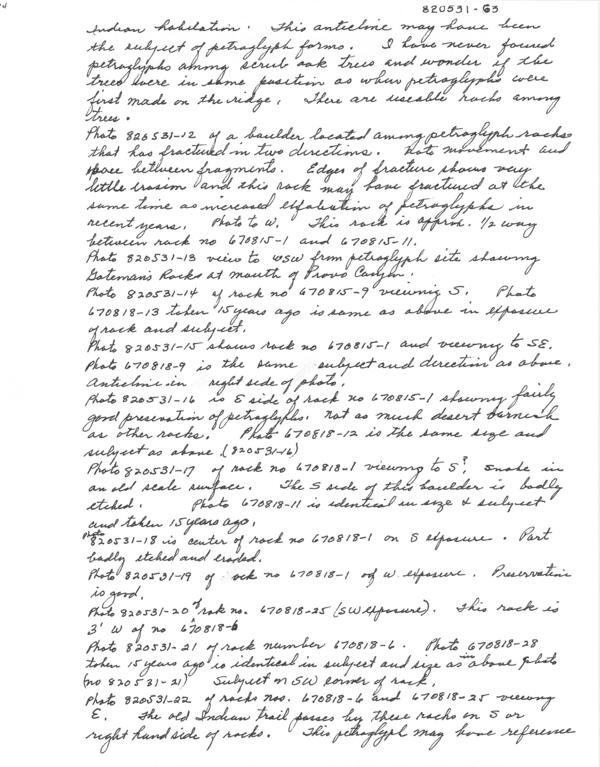 820531-63
Indian habitation. This anticline may have been
the subject of petroglyph forms. I have never found
petroglyphs among scrub oak trees and wonder if the
trees were in same position as when petroglyphs were
first made on the ridge. There are useable rocks among
trees.
Photo 820531-12 of a boulder located among petroglyph rocks
that has fractured in two directions. Note movement and
space between fragments. Edges of fracture shows very
little erosion and this rock may have fractured at the
same time as increased exfoliation of petroglyphs in
recent years. Photo to W. This rock is approx. 1/2 way
between rock no 670815-1 and 670815-11.
Photo 820531-13 view to WSW from petroglyph site showing
Bateman's Rocks at mouth of Provo Canyon.
Photo 820531-14 of rock no 670815-9 viewing S. Photo
670818-13 taken 15 years ago is same as above in exposure
of rock and subject.
Photo 820531-15 shows rock no 670815-1 and viewing to SE.
Photo 670818-9 is the same subject and direction as above.
Anticline in right side of photo.
Photo 820531-16 is E side of rock no 670815-1 showing fairly
good preservation of petroglyphs. Not as much desert varnish
as other rocks. Photo 670818-12 is the same size and
subject as above (820531-16)
Photo 820531-17 of rock no 670818-1 viewing to S? Snake in
an old scale surface. The S side of this boulder is badly
etched. Photo 670818-11 is identical in size & subject
and taken 15 years ago.
Photo 820531-18 is center of rock no 670818-1 on S exposure. Part
badly etched and eroded.
Photo 820531-19 of ock no 670818-1 of W exposure. Preservation
is good.
Photo 820531-20 of rock no. 670818-25 (SW exposure). This rock is
3' W of no 670818-6
Photo 820531-21 of rock number 670818-6. Photo 670818-28
taken 15 years ago is identical in subject and size as in above photo
(no 820531-21) Subject on SW corner of rock.
Photo 820531-22 of rocks nos. 670818-6 and 670818-25 viewing
E. The old Indian trail passes by these rocks on S or
right hand side of rocks. This petroglyph may have reference